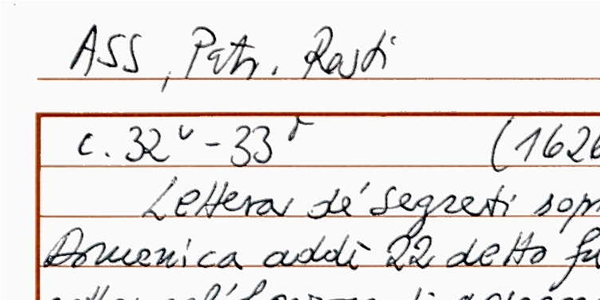 ASS, Patr. Resti
c. 32v-33r (1626
Lettera de' segreti sop
Domenica addì 22 detto fu